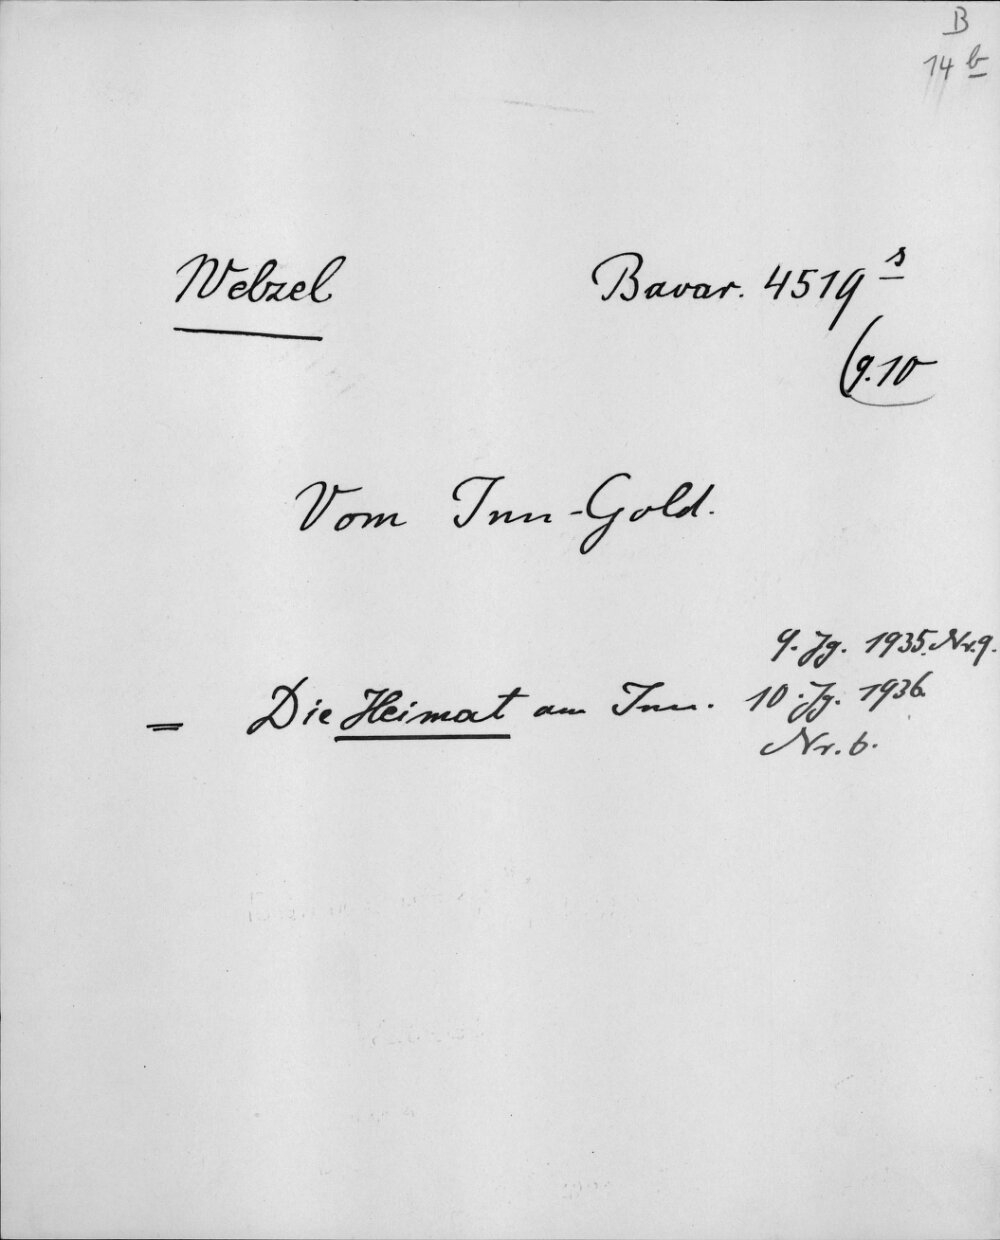 B
14 b
Webzel Bavar. 4519 s
(9.10
Vom Inn-Gold.
9. Jg. 1935. Nr. 9.
= Die Heimat am Inn. 10. Jg. 1936.
Nr. 6.